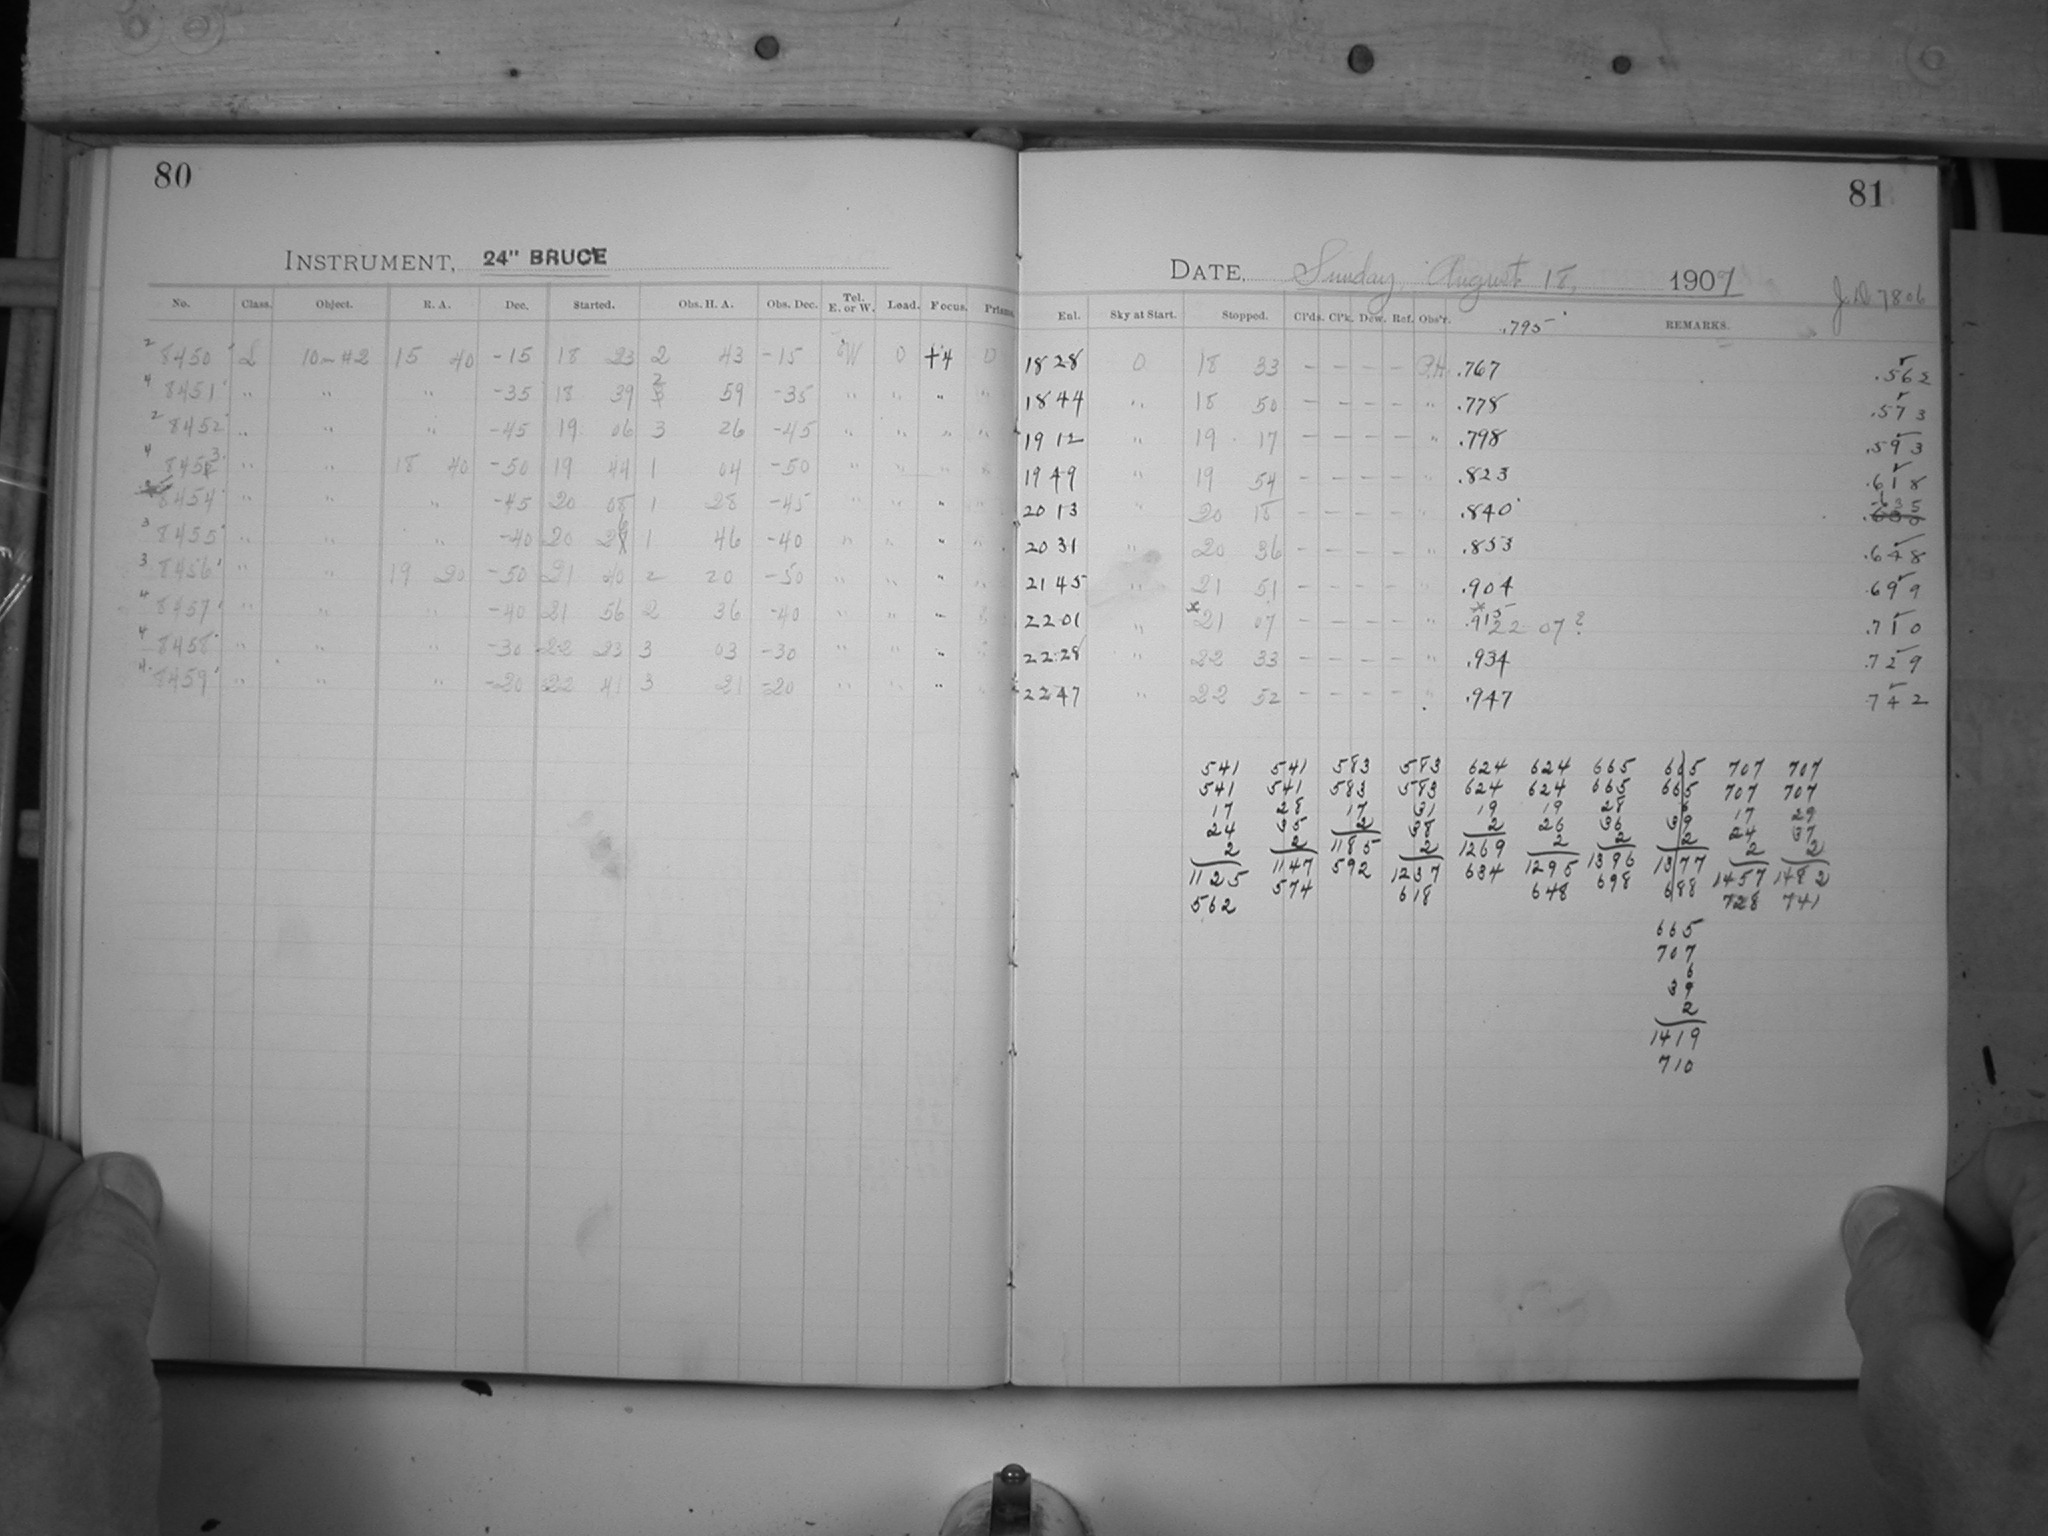 80
81
INSTRUMENT, 24" BRUCE
DATE, Sunday, August 18, 1907
J.D. 7806
No. Class. Object. R. A. Dec. Started. Obs. H. A. Obs. Dec. Tel. E. or W. Load. Focus. Prisms. Ent. Sky at Start. Stopped. Cl'ds. Cl'k. Dew. Ref. Obs'r. .795 REMARKS.
2 8450 L 10m #2 15 40 -15 18 23 2 43 -15 W 0 +4 0 18 28 0 18 33 - - - - P.H. .767 .562
4 8451 " " " -35 18 39 2 59 -35 " " " " 18 44 " 18 50 - - - - " .778 .573
2 8452 " " " -45 19 06 3 26 -45 " " " " 19 12 " 19 17 - - - - " .798 .593
4 8453 " " 18 40 -50 19 44 1 04 -50 " " " " 19 49 " 19 54 - - - - " .823 .618
8454 " " " -45 20 08 1 28 -45 " " " " 20 13 " 20 18 - - - - " .840 .635
3 8455 " " " -40 20 26 1 46 -40 " " " " 20 31 " 20 36 - - - - " .853 .648
3 8456 " " 19 20 -50 21 40 2 20 -50 " " " " 21 45 " 21 51 - - - - " .904 .699
4 8457 " " " -40 21 56 2 36 -40 " " " " 22 01 " *21 07 - - - - " * .915 22 07? .710
4 8458 " " " -30 22 23 3 03 -30 " " " " 22 28 " 22 33 - - - - " .934 .729
4 8459 " " " -20 22 41 3 21 -20 " " " " 22 47 " 22 52 - - - - " .947 .742
541 541 583 583 624 624 665 665 707 707
541 541 583 583 624 624 665 665 707 707
17 28 17 31 19 19 28 6 17 29
24 35 2 38 2 26 36 39 24 37
2 2 1185 2 1269 2 2 2 2 2
1125 1147 592 1237 634 1295 1396 1377 1457 1482
562 574 618 648 698 688 728 741
665
707
6
39
2
1419
710